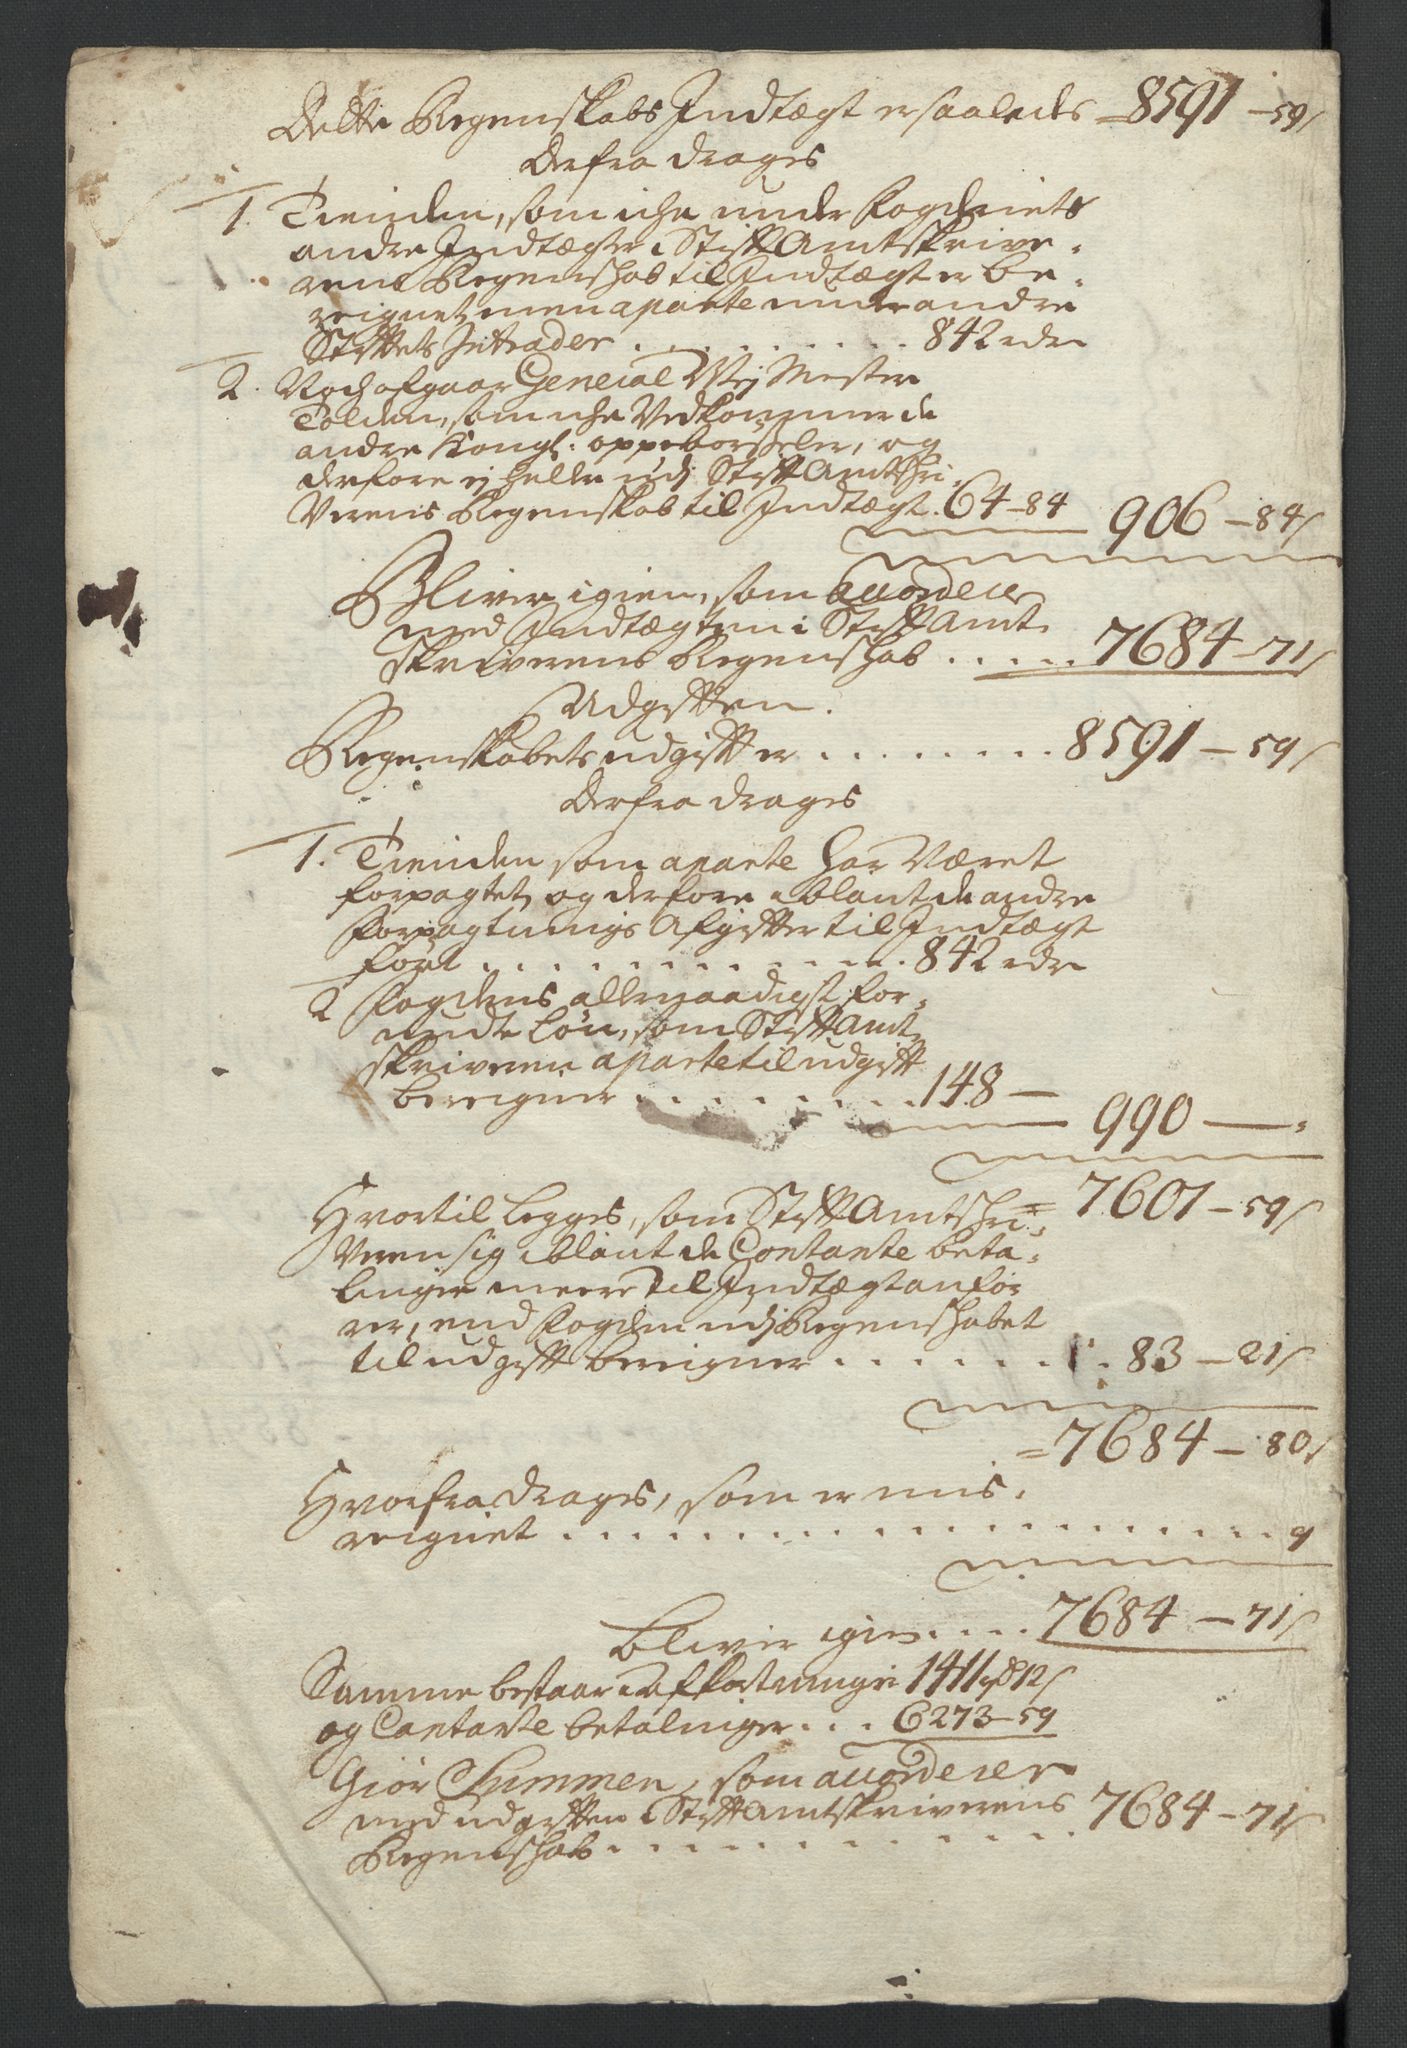 Dette Regenskabs Indtægt er saaledes - 8591 - 59 s
Derfra drages
1. Tienden, som iche under Fogderiets
andre Indtægter i StifftAmtskrive-
rens Regenschab til Indtægt er be-
reignet, men aparte under andre
Stifftets Intrader . . . . . . . . . 842 rdr
2. Noch afgaar General Vej Mester
Tolden, som iche Vedkommer de
andre Kongl: oppebørsseler, og
derfore ej heller udj StifftAmtschri-
Verens Regenskab til Indtægt . 64 - 84 906 - 84 s
Bliver igien, som accorderer
med Indtægten i StifftAmt-
skriverens Regenschab . . . . . 7684 - 71 s
Udgifften.
Regenskabets udgifft er . . . . . . . . 8591 - 59 s
Derfra drages
1. Tienden som aparte har Været
forpagtet, og derfore iblant de andre
Forpagtnings Afgiffter til Indtægt
ført . . . . . . . . . . . . 842 rdr
2 Fogdens allernaadigst for-
undte Løn, som StifftAmt-
skriveren aparte til udgifft
bereigner . . . . . . . . 148 — 990 —
= 7601 - 59 s
Hvortil Legges, som StifftAmtschri-
Veren sig iblant de Contante beta-
linger meere til Indtægt anfø-
rer, end Fogden udj Regenschabet
til udgifft bereigner . . . . . . . . 83 - 21 s
= 7684 - 80 s
Hvorfra drages, som er mis-
reignet . . . . . . . . . . . . . . . . . . 9
Bliver igien . . . . 7684 - 71 s
Samme bestaar i Afkortninger 1411 rdr 12 s
og Contante betalinger . . . 6273 - 59
Giør Summen, som accorderer
med udgifften i StifftAmtskriverens 7684 - 71 s
Regenschab . . . . . . . . . . . .